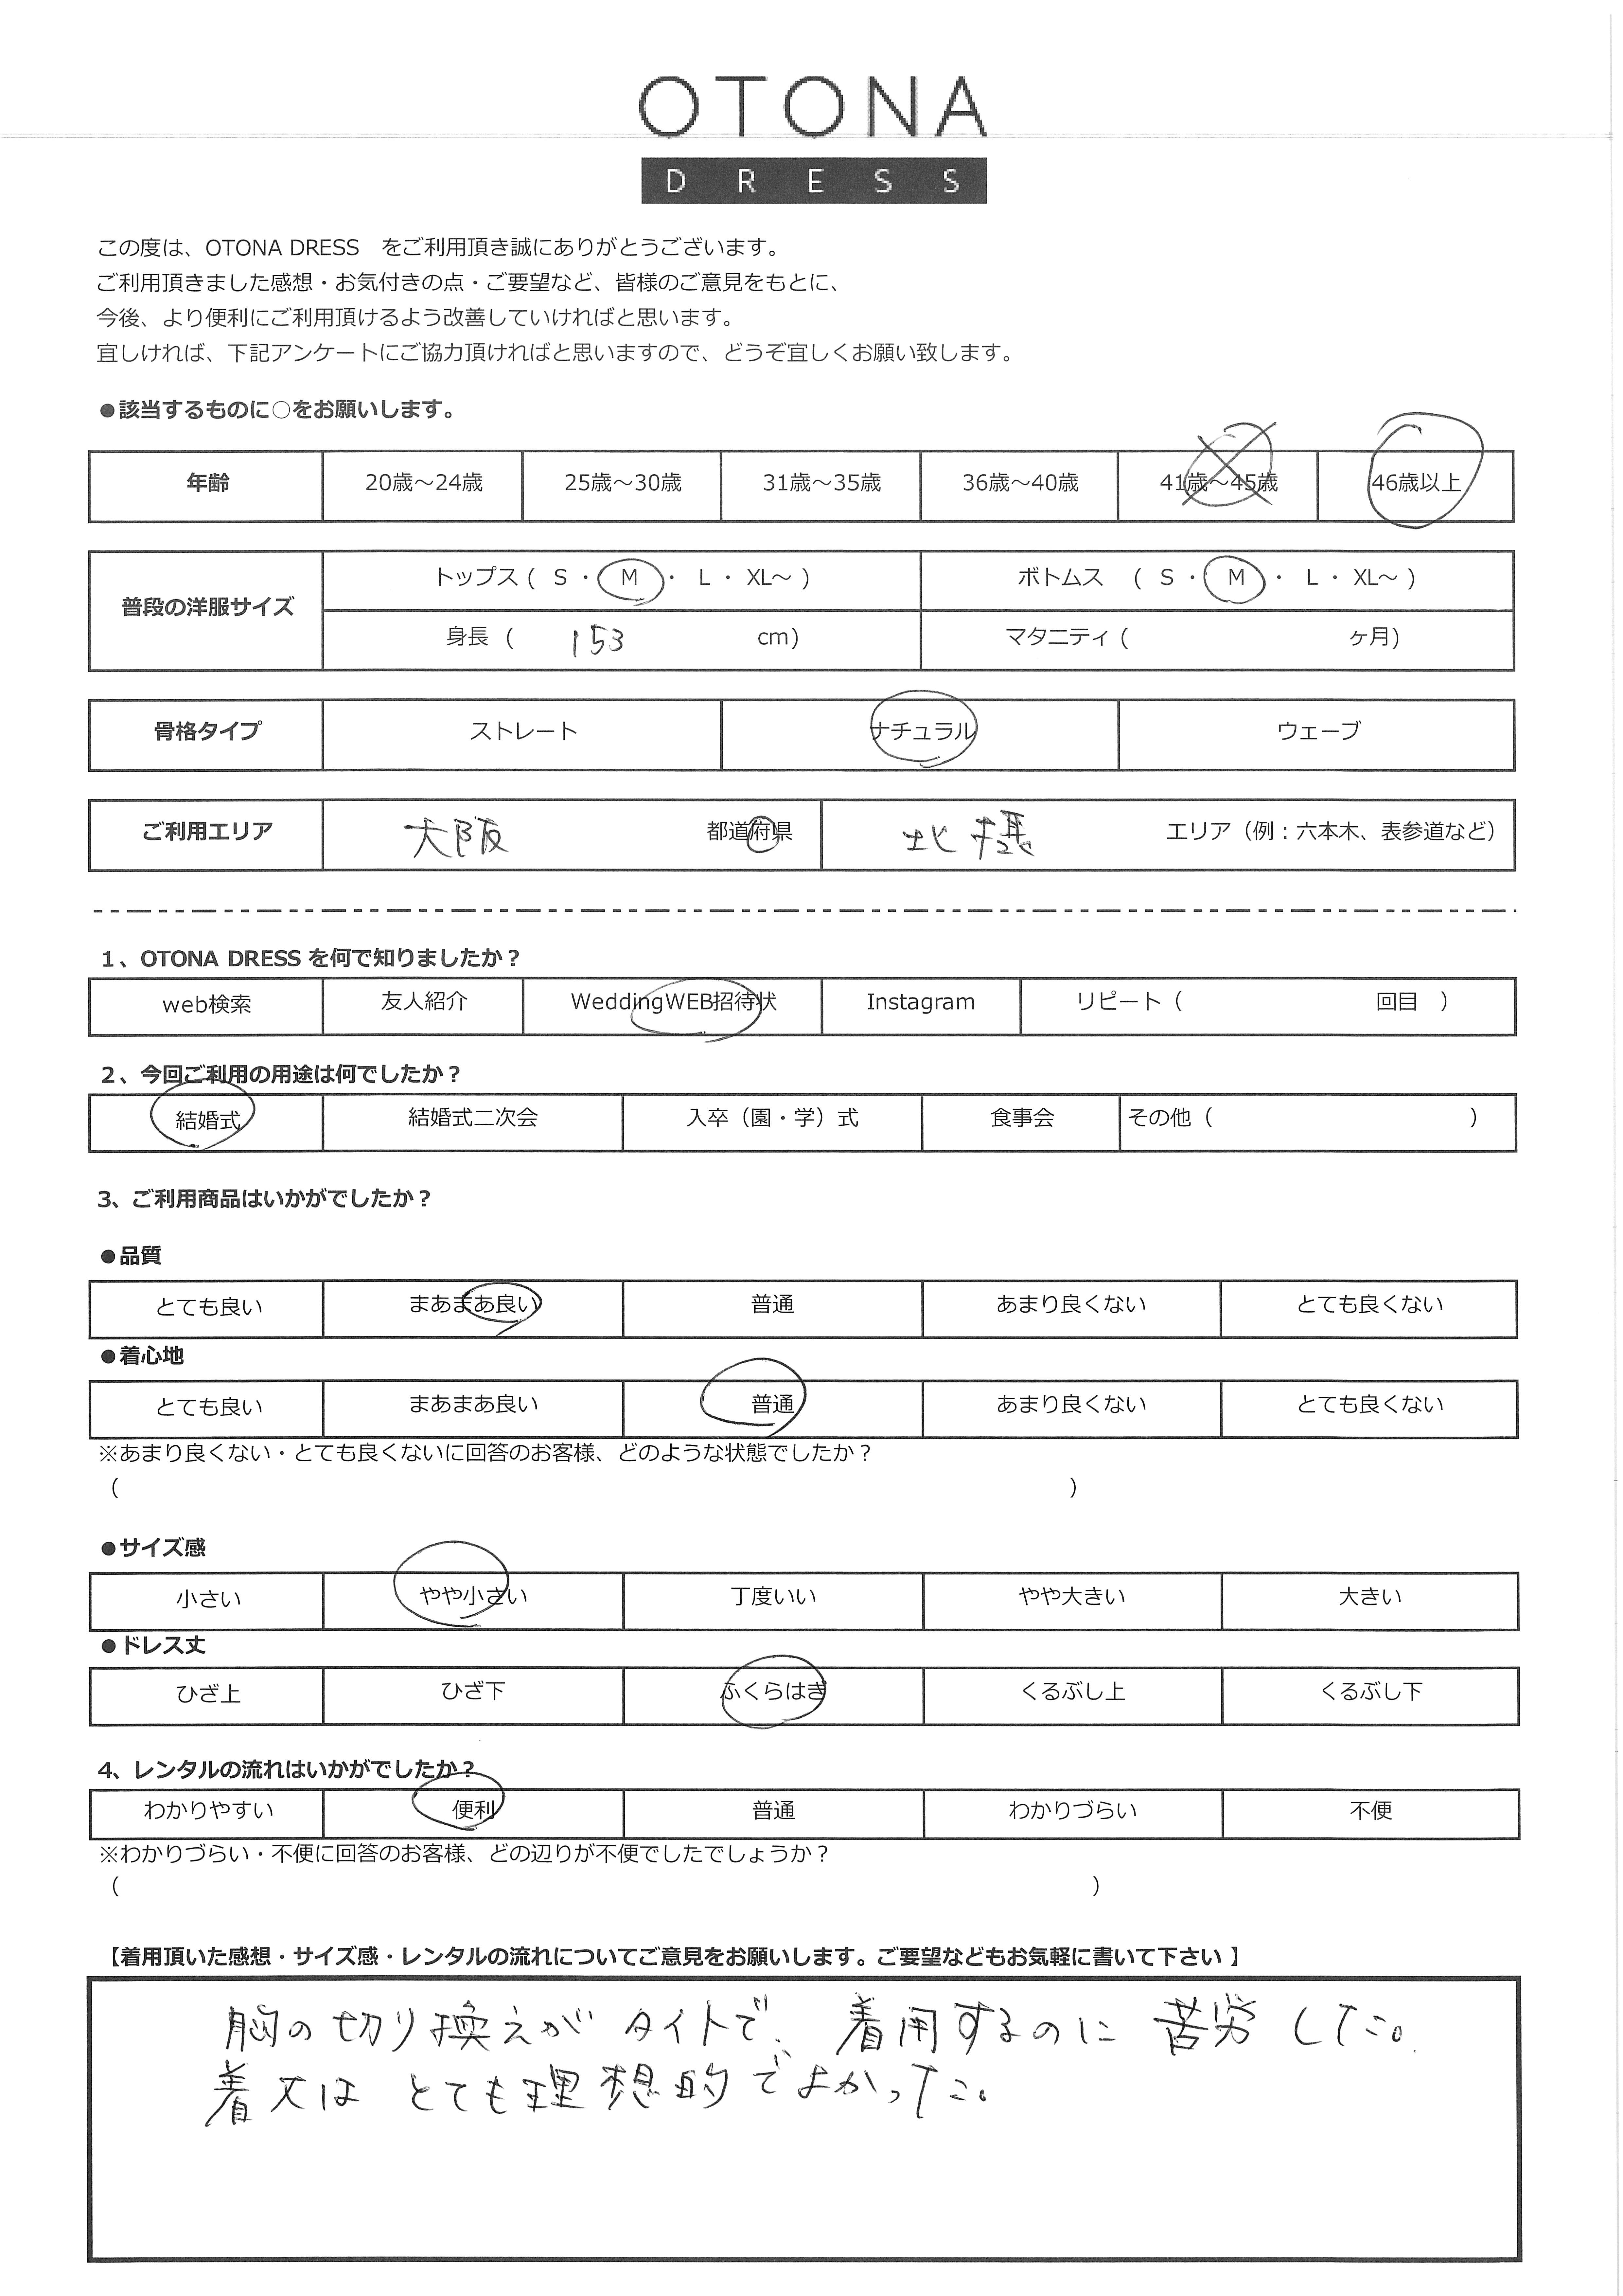 OTONA
DRESS
この度は、OTONA DRESS　をご利用頂き誠にありがとうございます。
ご利用頂きました感想・お気付きの点・ご要望など、皆様のご意見をもとに、
今後、より便利にご利用頂けるよう改善していければと思います。
宜しければ、下記アンケートにご協力頂ければと思いますので、どうぞ宜しくお願い致します。
●該当するものに○をお願いします。
年齢 20歳～24歳 25歳～30歳 31歳～35歳 36歳～40歳 41歳～45歳 46歳以上
普段の洋服サイズ トップス ( S ・ M ・ L ・ XL～ ) ボトムス ( S ・ M ・ L ・ XL～ )
身長 ( 153 cm) マタニティ ( ヶ月)
骨格タイプ ストレート ナチュラル ウェーブ
ご利用エリア 大阪 都道府県 北摂 エリア（例：六本木、表参道など）
1、OTONA DRESS を何で知りましたか？
web検索 友人紹介 WeddingWEB招待状 Instagram リピート（ 回目 ）
2、今回ご利用の用途は何でしたか？
結婚式 結婚式二次会 入卒（園・学）式 食事会 その他（ ）
3、ご利用商品はいかがでしたか？
●品質
とても良い まあまあ良い 普通 あまり良くない とても良くない
●着心地
とても良い まあまあ良い 普通 あまり良くない とても良くない
※あまり良くない・とても良くないに回答のお客様、どのような状態でしたか？
（ ）
●サイズ感
小さい やや小さい 丁度いい やや大きい 大きい
●ドレス丈
ひざ上 ひざ下 ふくらはぎ くるぶし上 くるぶし下
4、レンタルの流れはいかがでしたか？
わかりやすい 便利 普通 わかりづらい 不便
※わかりづらい・不便に回答のお客様、どの辺りが不便でしたでしょうか？
（ ）
【着用頂いた感想・サイズ感・レンタルの流れについてご意見をお願いします。ご要望などもお気軽に書いて下さい 】
胸の切り換えがタイトで、着用するのに苦労した。
着丈は とても理想的でよかった。